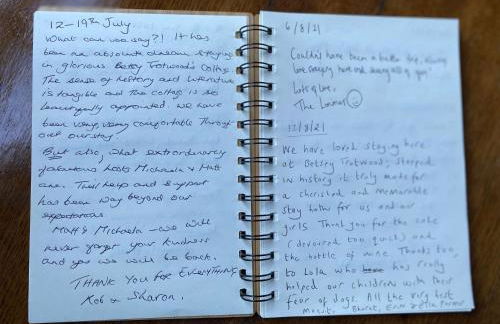 12-19th July.
What can we say?! It has
been an absolute dream staying
in glorious Betsey Trotwood's Cottage.
The sense of history and literature
is tangible and the cottage is so
beautifully appointed. We have
been very, very comfortable through
out our stay.
But also, what extraordinary
fabulous hosts Michaela & Matt
are. Their help and support
has been way beyond our
expectations
Matt & Michaela - we will
never forget your kindness
and yes we will be back.
THANK YOU FOR EVERYTHING
Rob & Sharon.
6/8/21
Couldn't have been a better trip,
love sleeping here and seeing all of you!
Lots of love,
The
12/8/21
We have loved staying here
at Betsey Trotwood, steeped
in history it truly made for
a cherished and memorable
stay both for us and our
girls. Thank you for the cake
(devoured too quick) and
the bottle of wine. Thanks too,
to Lola who has really
helped our children with their
fear of dogs. All the very best